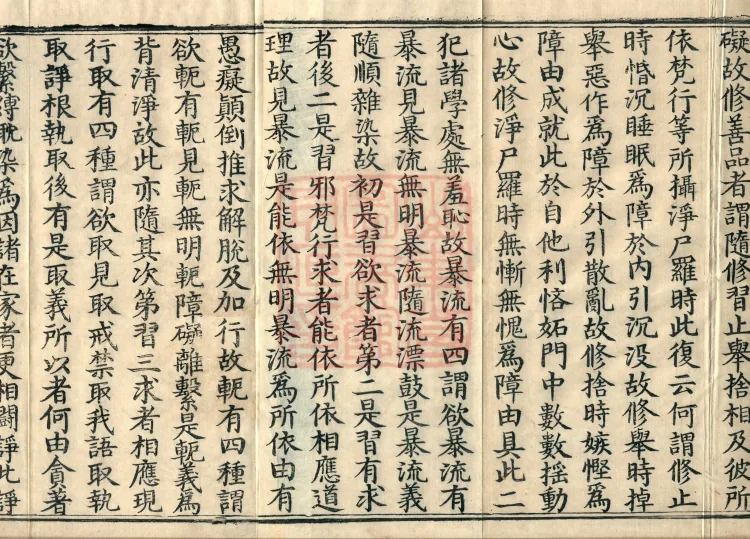 礙故修善品者謂隨修習止舉捨相及彼所
依梵行等所攝淨尸羅時此復云何謂修止
時惛沉睡眠爲障於內引沉没故修舉時掉
舉惡作爲障於外引散亂故修捨時嫉慳爲
障由成就此於自他利悋妬門中數數揺動
心故修淨尸羅時無慚無愧爲障由具此二
犯諸學處無羞恥故暴流有四謂欲暴流有
暴流見暴流無明暴流隨流漂鼓是暴流義
隨順雜染故初是習欲求者第二是習有求
者後二是習邪梵行求者能依所依相應道
理故見暴流是能依無明暴流爲所依由有
愚癡顛倒推求解脫及加行故軛有四種謂
欲軛有軛見軛無明軛障礙離繫是軛義爲
背清淨故此亦隨其次第習三求者相應現
行取有四種謂欲取見取戒禁取我語取執
取諍根執取後有是取義所以者何由貪著
欲繫縛耽染爲因諸在家者更相鬪諍此諍